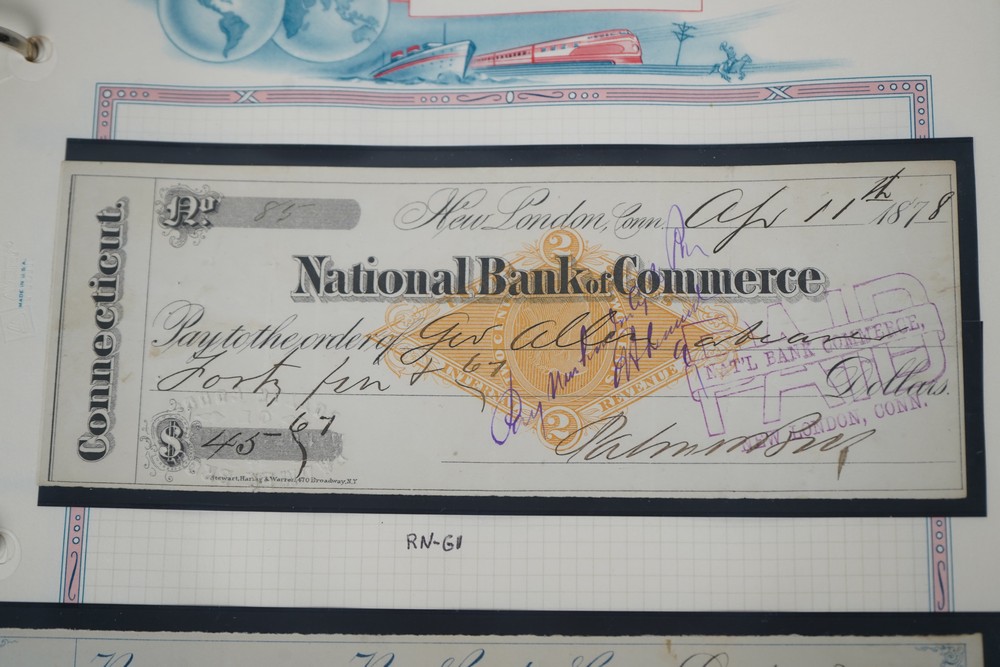 MADE IN U.S.A.
Connecticut.
No 85
New London, Conn. Apr 11th 1878
National Bank of Commerce
Pay to the order of Geo Allen
Forty five & 67 Dollars.
2
INTERNAL REVENUE
2
Pay
PAID
NAT'L BANK COMMERCE,
NEW LONDON, CONN.
$ 45 67
Palmer Bros
Stewart, Haring & Warren, 470 Broadway, N.Y
RN-G1